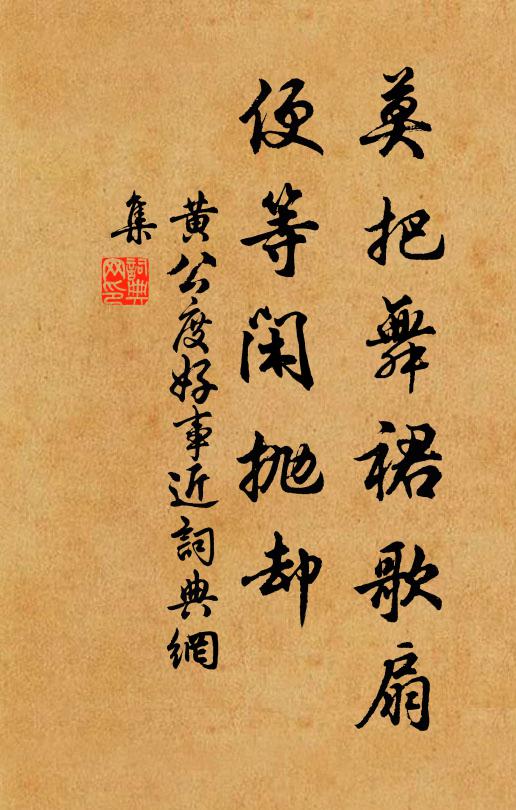 莫把舞裙歌扇
便等閑抛却
黄公度好事近詞典網
集
詞典
网印